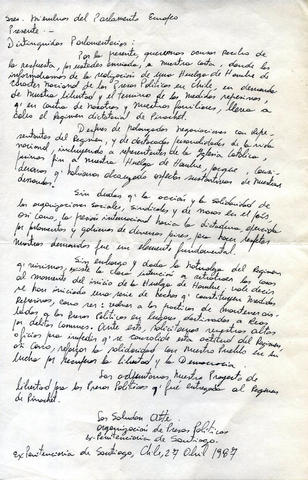 Sres. Miembros del Parlamento Europeo
Presente.-
Distinguidos Parlamentarios:
Por la presente, queremos acusar recibo de
la respuesta, por ustedes enviada, a nuestra carta, donde les
informábamos de la realización de una Huelga de Hambre de
carácter Nacional de los Presos Políticos en Chile, en demanda
de Nuestra libertad y el término de las Medidas represivas,
q' en contra de nosotros y nuestros familiares, lleva a
cabo el Régimen dictatorial de Pinochet.
Después de prolongadas negociaciones con repre-
sentantes del Régimen, y de destacadas personalidades de la vida
nacional, incluyendo a representantes de la Iglesia Católica,
pusimos fin a nuestra Huelga de Hambre, porque, consi-
deramos q' habíamos alcanzado aspectos sustantivos de Nuestras
demandas.
Sin dudas q' la acción y la solidaridad de
las organizaciones sociales, sindicales, y de masas en el país,
así como, la presión internacional hacia la dictadura, ejercida
por parlamentos y gobiernos de diversos países para hacer respetar
nuestras demandas fue un elemento fundamental.
Sin embargo y dada la naturaleza del Régimen
q' vivimos, existe la clara intención de actualizar los casos
al momento del inicio de la Huelga de Hambre, vale decir,
se han iniciado una serie de hechos q' constituyen Medidas
Represivas, como ser: volver a las prácticas de mantener ais-
lados a los Presos Políticos en lugares destinados a reos
por delitos comunes. Ante esto, solicitamos vuestros altos
oficios para impedir q' se consolide esta actitud del Régimen
así como, reforzar la solidaridad con Nuestro Pueblo en su
lucha por recuperar la libertad y la Democracia
Les adjuntamos Nuestro Proyecto de
Libertad para los Presos Políticos q' fue entregado al Régimen
de Pinochet.
Les Saludan Atte.
Organización de Presos Políticos
ex-Penitenciaria de Santiago.
Ex Penitenciaria de Santiago, Chile, 27 Abril 1987